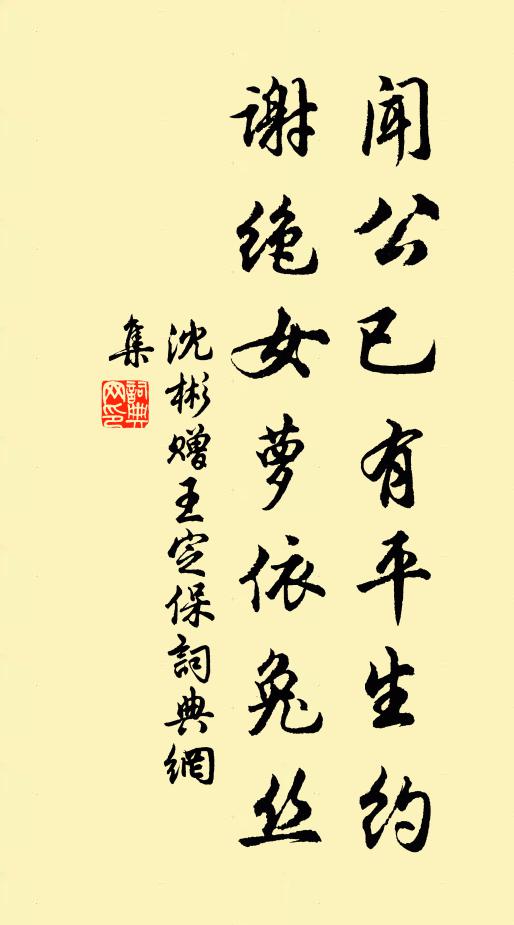 闻公已有平生约
谢绝女萝依兔丝
沈彬赠王定保詞典網
集
詞典网印